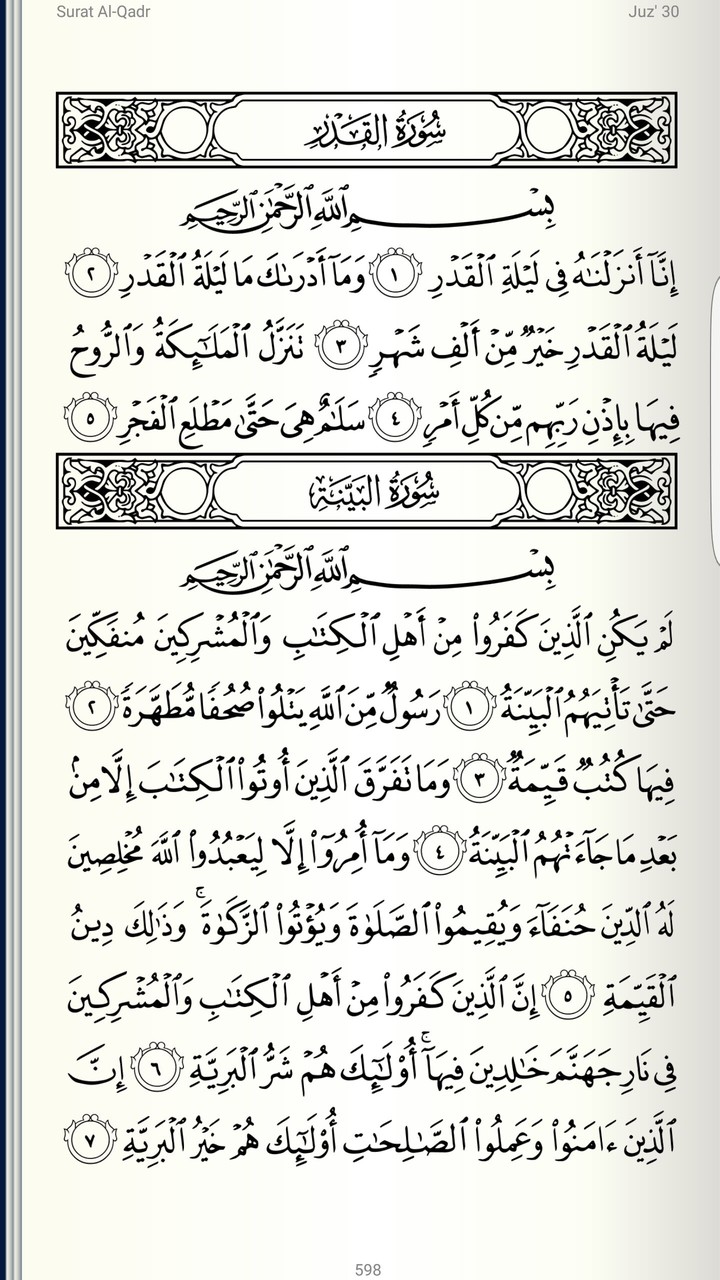 Surat Al-Qadr Juz' 30
سُورَةُ القَدْرِ
بِسْمِ ٱللَّهِ ٱلرَّحْمَٰنِ ٱلرَّحِيمِ
إِنَّآ أَنزَلْنَٰهُ فِى لَيْلَةِ ٱلْقَدْرِ ١ وَمَآ أَدْرَىٰكَ مَا لَيْلَةُ ٱلْقَدْرِ ٢
لَيْلَةُ ٱلْقَدْرِ خَيْرٌ مِّنْ أَلْفِ شَهْرٍ ٣ تَنَزَّلُ ٱلْمَلَٰٓئِكَةُ وَٱلرُّوحُ
فِيهَا بِإِذْنِ رَبِّهِم مِّن كُلِّ أَمْرٍ ٤ سَلَٰمٌ هِىَ حَتَّىٰ مَطْلَعِ ٱلْفَجْرِ ٥
سُورَةُ البَيِّنَةِ
بِسْمِ ٱللَّهِ ٱلرَّحْمَٰنِ ٱلرَّحِيمِ
لَمْ يَكُنِ ٱلَّذِينَ كَفَرُوا۟ مِنْ أَهْلِ ٱلْكِتَٰبِ وَٱلْمُشْرِكِينَ مُنفَكِّينَ
حَتَّىٰ تَأْتِيَهُمُ ٱلْبَيِّنَةُ ١ رَسُولٌ مِّنَ ٱللَّهِ يَتْلُوا۟ صُحُفًا مُّطَهَّرَةً ٢
فِيهَا كُتُبٌ قَيِّمَةٌ ٣ وَمَا تَفَرَّقَ ٱلَّذِينَ أُوتُوا۟ ٱلْكِتَٰبَ إِلَّا مِنۢ
بَعْدِ مَا جَآءَتْهُمُ ٱلْبَيِّنَةُ ٤ وَمَآ أُمِرُوٓا۟ إِلَّا لِيَعْبُدُوا۟ ٱللَّهَ مُخْلِصِينَ
لَهُ ٱلدِّينَ حُنَفَآءَ وَيُقِيمُوا۟ ٱلصَّلَوٰةَ وَيُؤْتُوا۟ ٱلزَّكَوٰةَ ۚ وَذَٰلِكَ دِينُ
ٱلْقَيِّمَةِ ٥ إِنَّ ٱلَّذِينَ كَفَرُوا۟ مِنْ أَهْلِ ٱلْكِتَٰبِ وَٱلْمُشْرِكِينَ
فِى نَارِ جَهَنَّمَ خَٰلِدِينَ فِيهَآ ۚ أُو۟لَٰٓئِكَ هُمْ شَرُّ ٱلْبَرِيَّةِ ٦ إِنَّ
ٱلَّذِينَ ءَامَنُوا۟ وَعَمِلُوا۟ ٱلصَّٰلِحَٰتِ أُو۟لَٰٓئِكَ هُمْ خَيْرُ ٱلْبَرِيَّةِ ٧
598